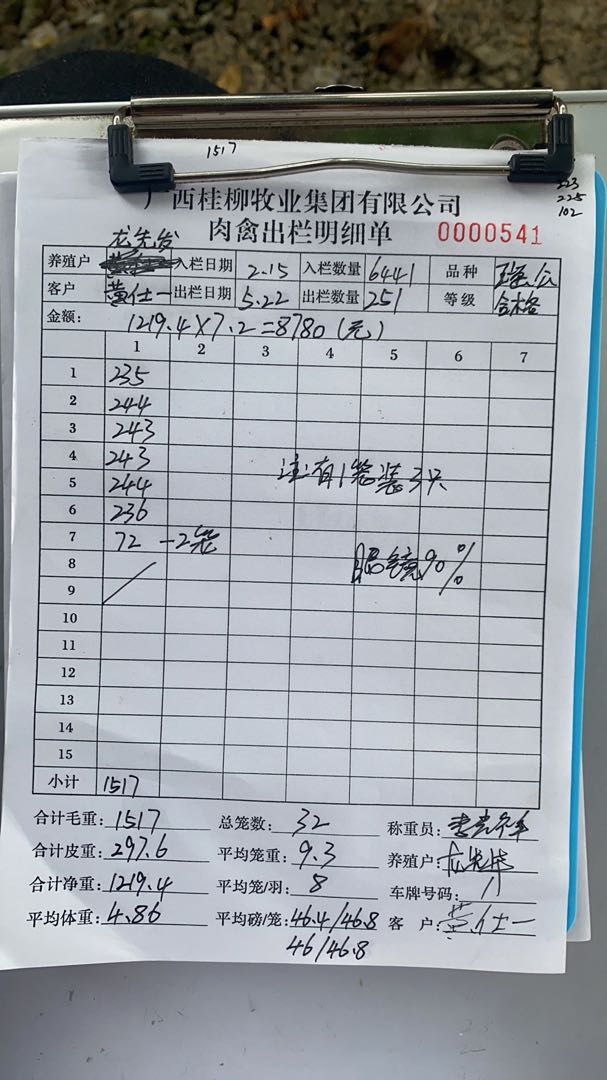 1517
223
225
102
广西桂柳牧业集团有限公司
肉禽出栏明细单 0000541
龙先发
养殖户 入栏日期 2.15 入栏数量 6441 品种
客户 黄仕一 出栏日期 5.22 出栏数量 251 等级 合格
金额: 1219.4×7.2=8780(元)
1 2 3 4 5 6 7
1 235
2 244
3 243
4 243
5 244 注:有1笼装3只
6 236
7 72 -2笼
8 眼镜90%
9
10
11
12
13
14
15
小计 1517
合计毛重: 1517 总笼数: 32 称重员:
合计皮重: 297.6 平均笼重: 9.3 养殖户:
合计净重: 1219.4 平均笼/羽: 8 车牌号码:
平均体重: 4.86 平均磅/笼: 46.4/46.8 客户: 黄仕一
46/46.8